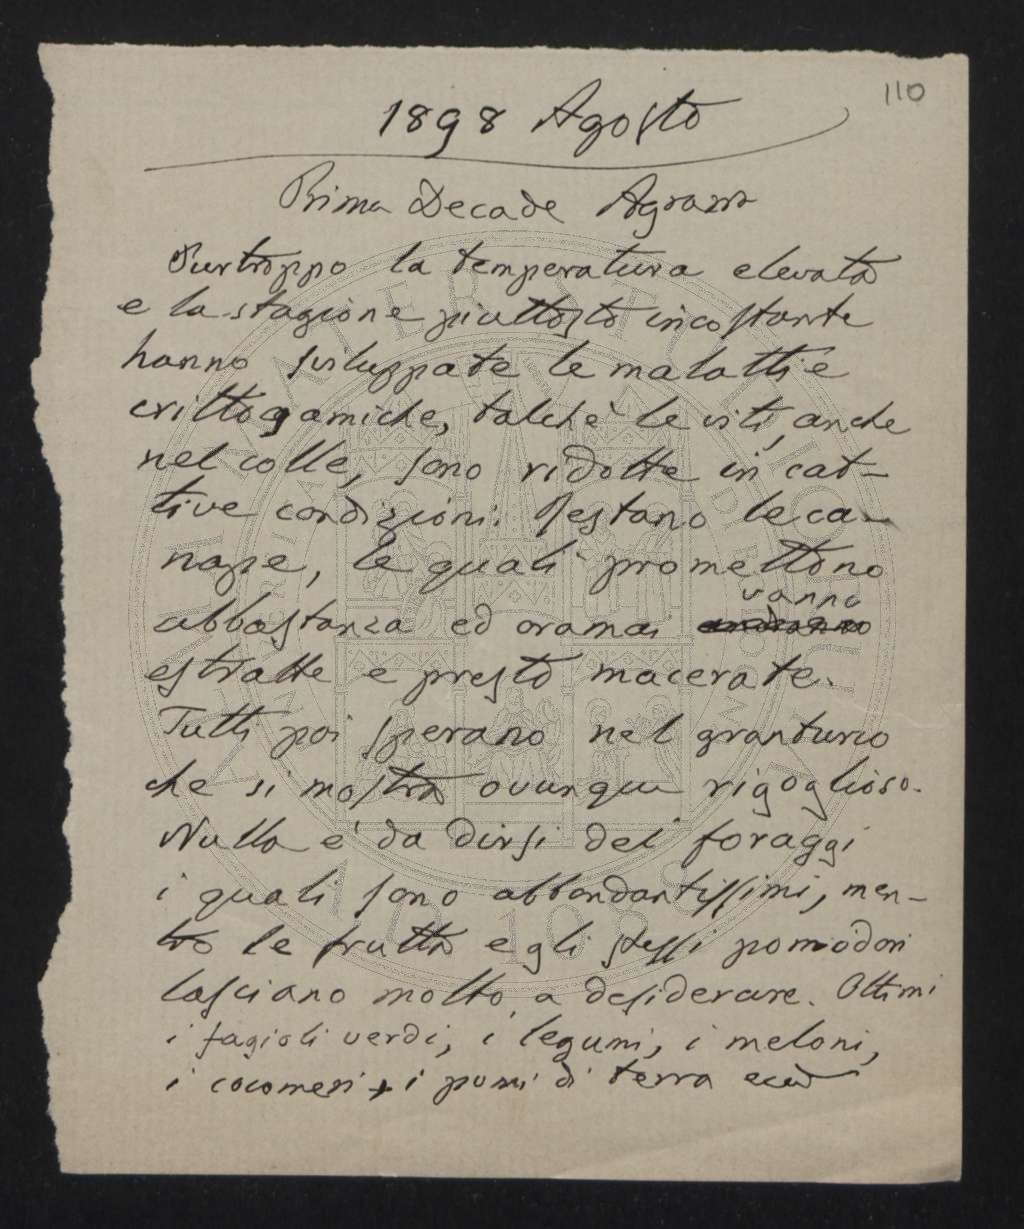 110
1898 Agosto
Prima Decade Agraria
Purtroppo la temperatura elevata
e la stagione piuttosto incostante
hanno sviluppate le malattie
crittogamiche, talchè le viti, anche
nel colle, sono ridotte in cat-
tive condizioni. Restano le ca-
nape, le quali promettono
vanno
abbastanza ed oramai
estratte e presto macerate.
Tutti poi sperano nel granturco
che si mostra ovunque rigoglioso.
Nulla è da dirsi dei foraggi
i quali sono abbondantissimi, men-
tre le frutta e gli stessi pomodori
lasciano molto a desiderare. Ottimi
i fagioli verdi, i legumi, i meloni,
i cocomeri, i pomi di terra ecc